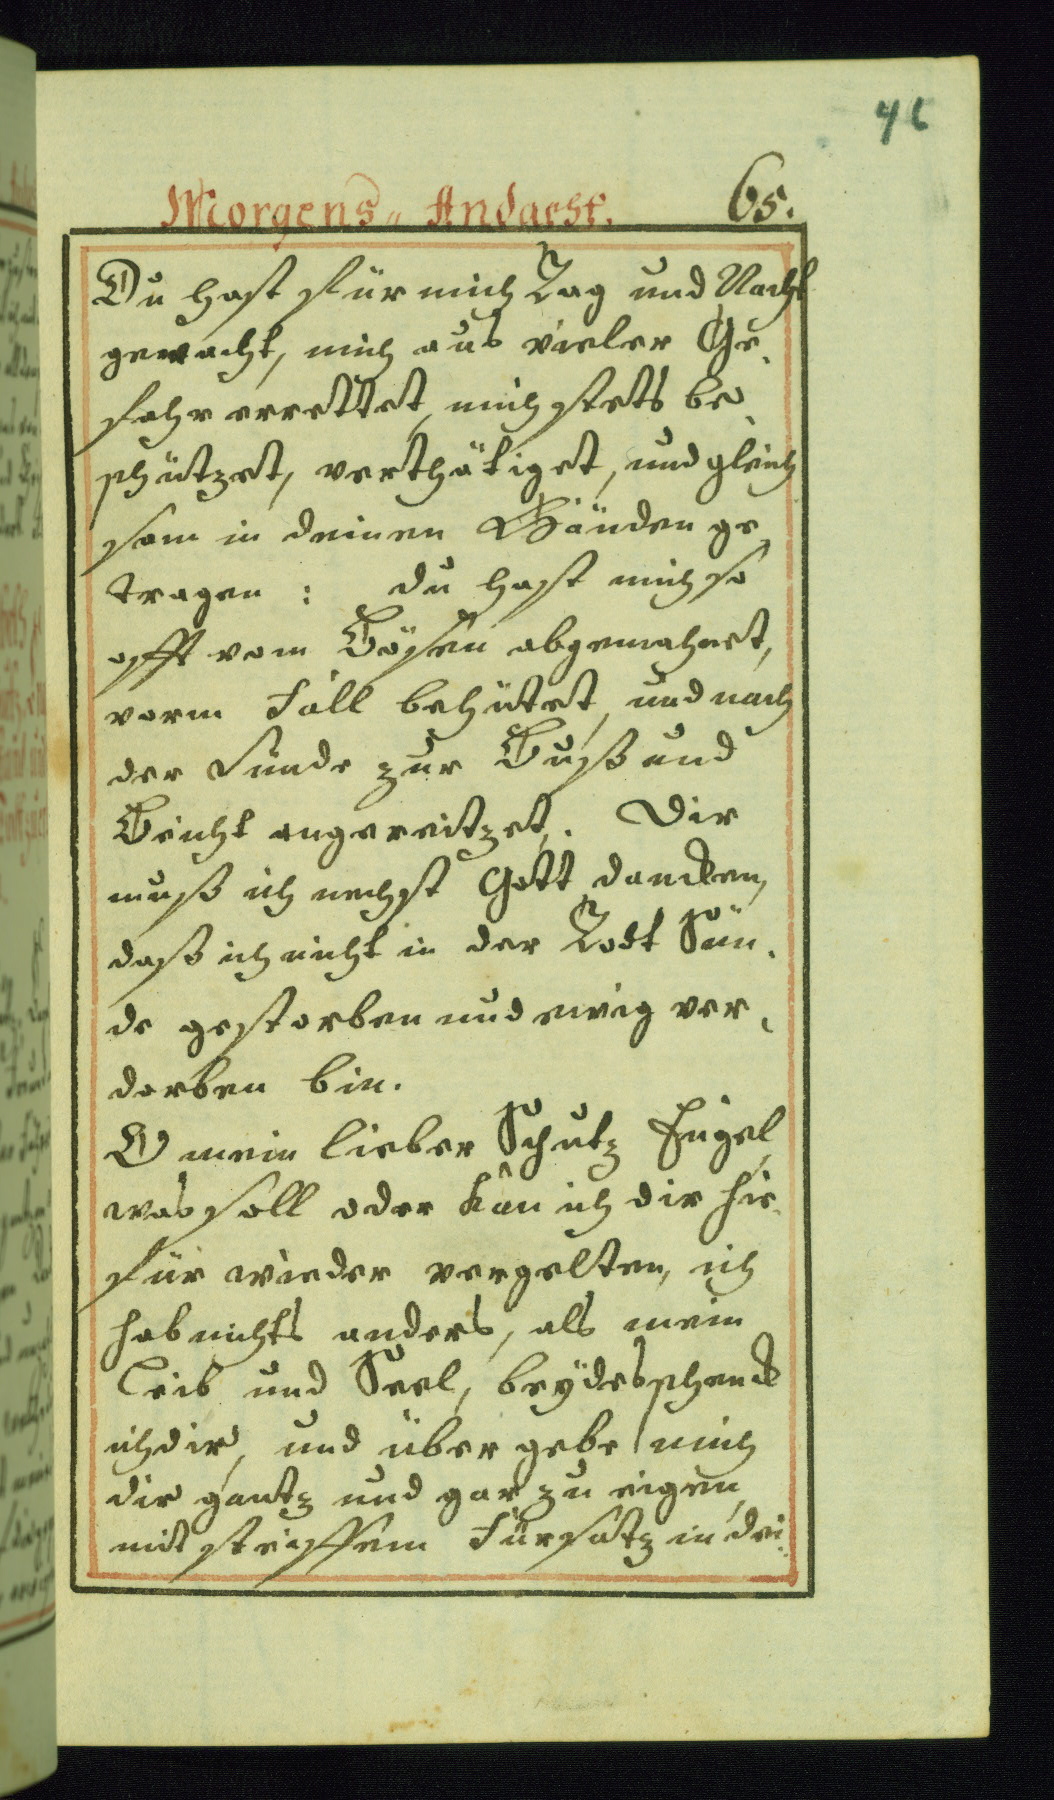 46
Morgens„ Andacht. 65.
Du hast für mich Tag und Nacht
gewacht, mich aus vieler Ge„
fahr errettet, mich stets be„
schützet, verthätiget, und gleich
sam in deinen Händen ge„
tragen: du hast mich so
offt vom Bösen abgemahnet,
vorm Fall behütet, und nach
der Sünde zur Buß und
Beicht angereitzet. Dir
muß ich nechst Gott dancken,
daß ich nicht in der Todt Sün„
de gestorben und ewig ver„
dorben bin.
O mein lieber Schutz Engel,
was soll oder kan ich dir hie„
für wieder vergelten, ich
hab nichts anders, als mein
Leib und Seel, beÿdes schenck
ich dir, und über gebe mich
dir gantz und gar zu eigen,
mit steiffem Fürsatz in dei„